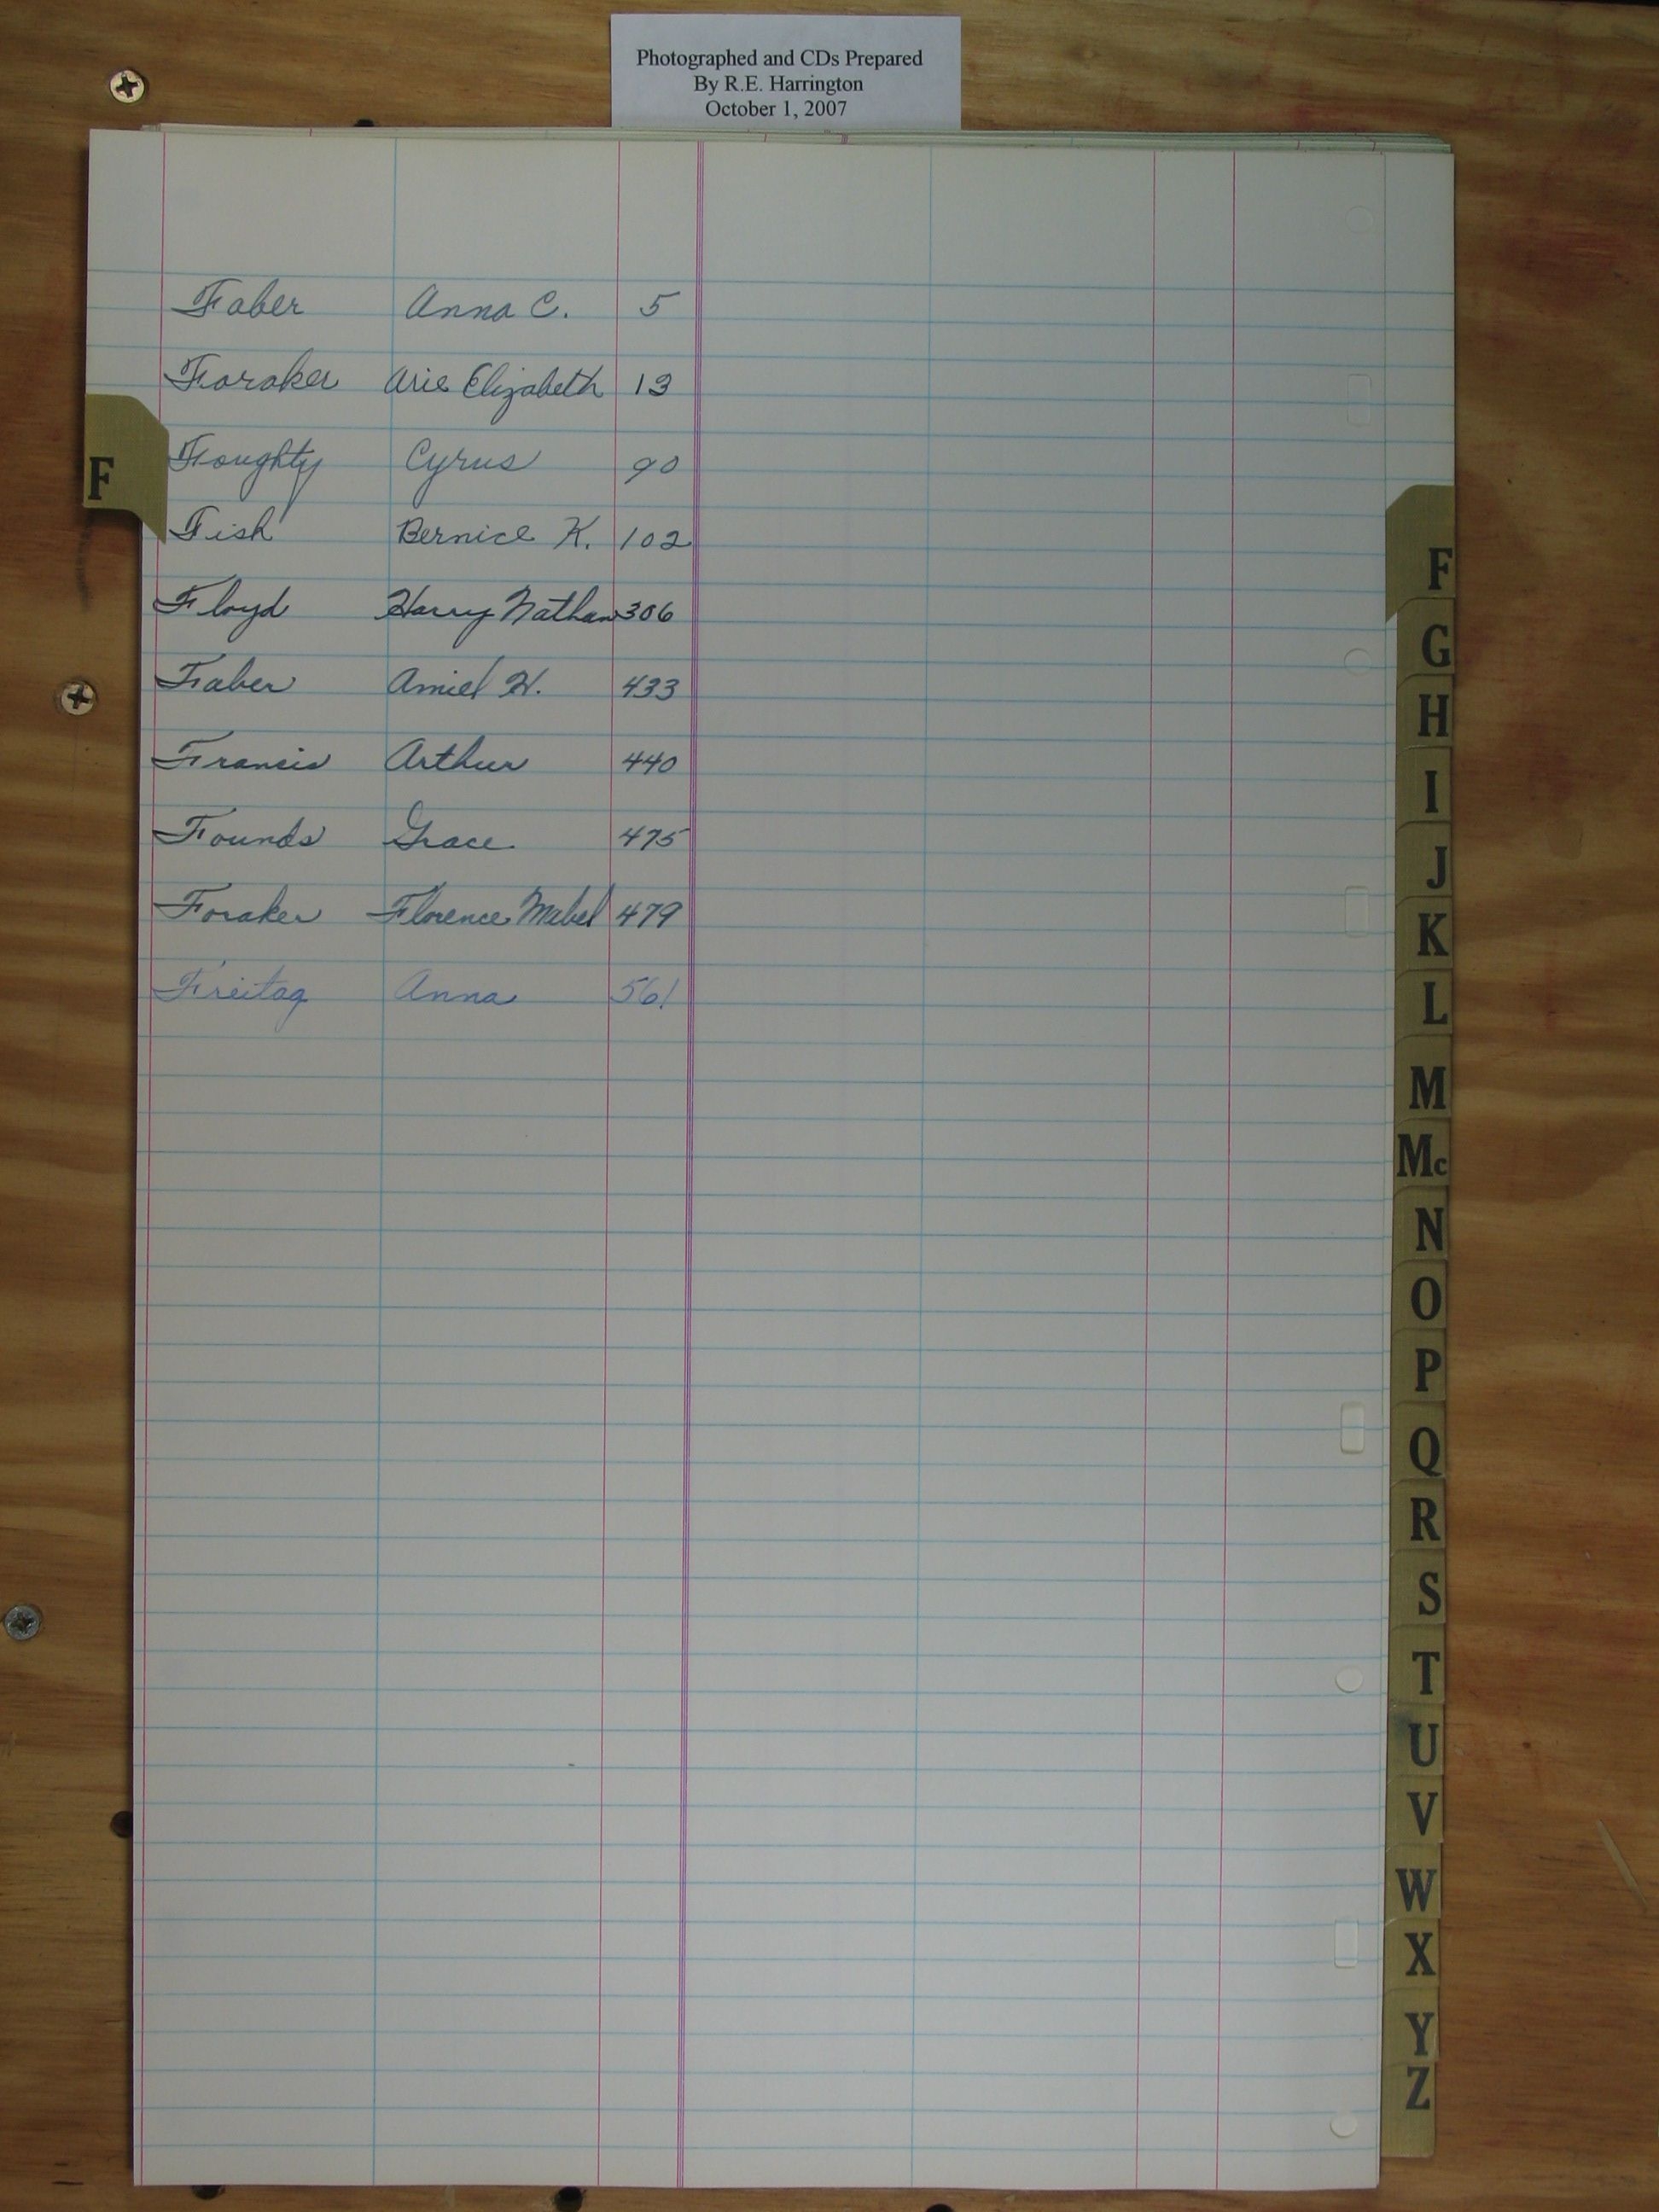 Photographed and CDs Prepared
By R.E. Harrington
October 1, 2007
Faber Anna C. 5
Foraker Arie Elizabeth 13
Foughty Cyrus 90
Fish Bernice K. 102
Floyd Harry Nathan 306
Faber Amiel H. 433
Francis Arthur 440
Founds Grace 475
Foraker Florence Mabel 479
Freitag Anna 561
F
F
G
H
I
J
K
L
M
Mc
N
O
P
Q
R
S
T
U
V
W
X
Y
Z